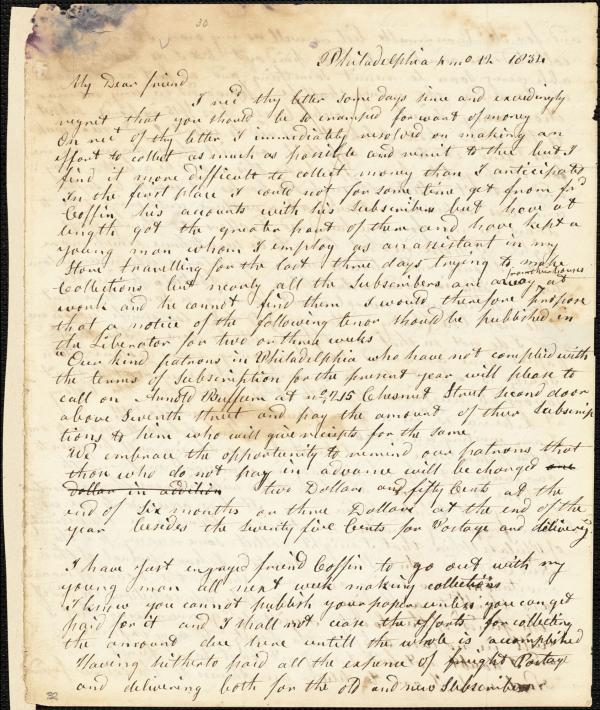 30
Philadelphia 4 mo 12 1834
My Dear friend
I recd thy letter some days since and exceedingly
regret that you should be so cramped for want of money
On rect of thy letter I immediately resolved on making an
effort to collect as much as possible and remit to thee but I
find it more difficult to collect money than I anticipated
In the first place I could not for some time get from frd
Coffin his accounts with his Subscribers but have at
length got the greater part of them and have kept a
young man whom I employ as an assistant in my
Store travelling for the last three days trying to make
Collections but nearly all the Subscribers are away at
from their houses
work and he cannot find them I would therefore propose
that a notice of the following tenor should be published in
the Liberator for two or three weeks
"Our kind patrons in Philadelphia who have not complied with
the terms of Subscription for the present year will please to
call on Arnold Buffum at no. 215 Chesnut Street second door
above Seventh street and pay the amount of their Subscrip
tions to him who will give reciepts for the same
We embrace the opportunity to remind our patrons that
those who do not pay in advance will be charged one
dollar in addition two Dollars and fifty Cents at the
end of Six months or three Dollars at the end of the
year besides the Seventy five Cents for Postage and delivering
I have just engaged friend Coffin to go out with my
young man all next week making collections
I know you cannot publish your paper unless you can get
paid for it and I shall not cease the efforts for collecting
the amount due here untill the whole is accomplished
Having hitherto paid all the expense of freight Postage
and delivering both for the old and new Subscribers
32